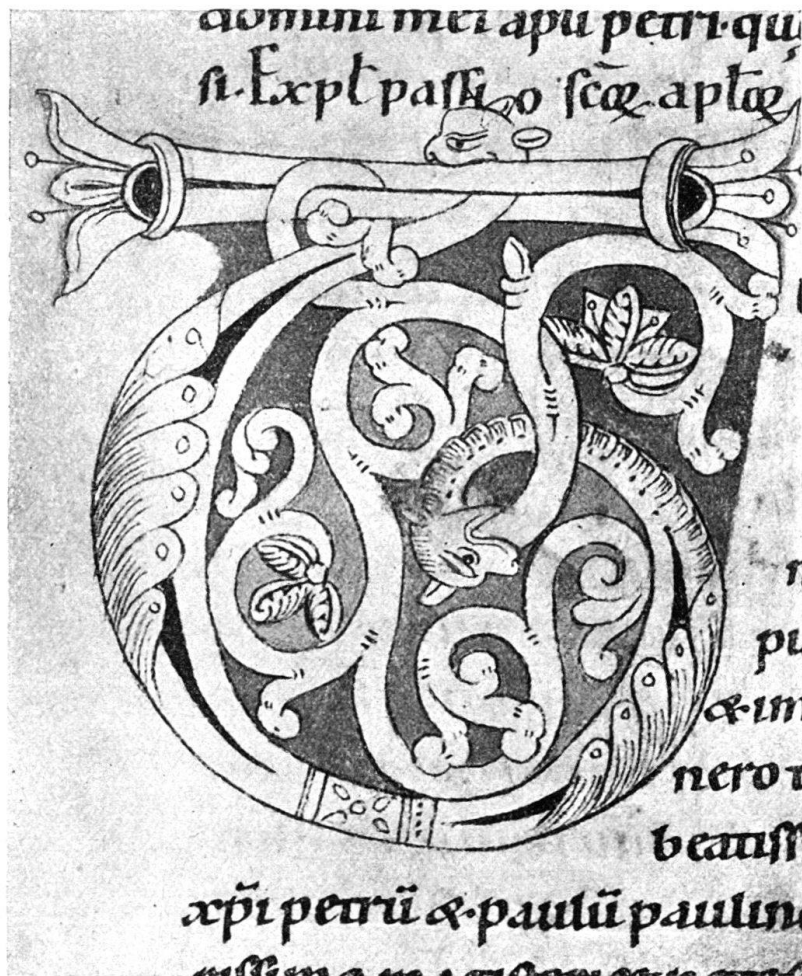 domini mei apli petri. qu
si. Expl̄ passio sc̄oꝝ. apl̄oꝝ
T
n
pu
& im
nero t
beatiss
xp̄i petrū & paulū paulin